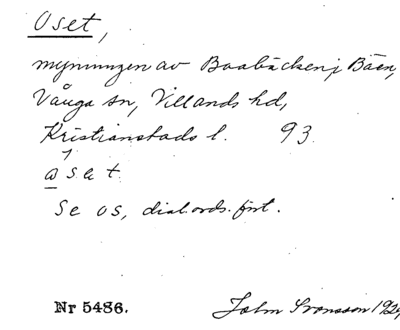 Oset,
mynningen av Boabäcken i Båen,
Vånga sn, Villands hd,
Kristianstads l. 93.
ω s e t.
Se os, dial.ords.fört.
Nr 5486. John Svensson 192